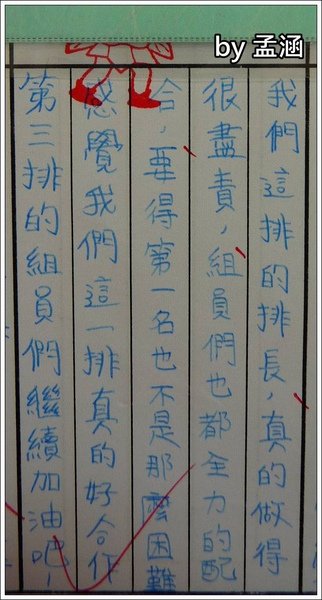 by 孟涵
我們這排的排長,真的做得
很盡責,組員們也都全力的配
合,要得第一名也不是那麼困難
感覺我們這一排真的好合作
第三排的組員們繼續加油吧!